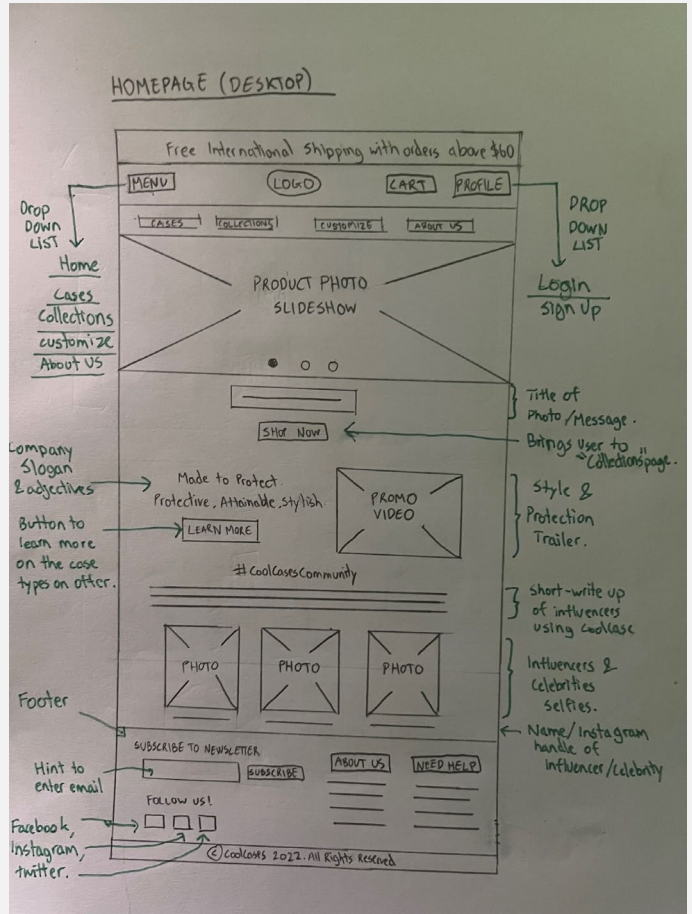 HOMEPAGE (DESKTOP)
Free International Shipping with orders above $60
MENU
LOGO
CART
PROFILE
CASES
COLLECTIONS
CUSTOMIZE
ABOUT US
DROP
DOWN
LIST
Home
Cases
Collections
customize
About US
DROP
DOWN
LIST
Login
Sign Up
PRODUCT PHOTO
SLIDESHOW
Title of
Photo/Message.
SHOP NOW
Brings user to
"Collections" page.
Company
Slogan
& adjectives
Made to Protect.
Protective, Attainable, Stylish.
LEARN MORE
Button to
learn more
on the case
types on offer.
PROMO
VIDEO
Style &
Protection
Trailer.
#CoolCasesCommunity
Short-write up
of influencers
using Coolcase
PHOTO
PHOTO
PHOTO
Influencers &
Celebrities
Selfies.
Name/Instagram
handle of
Influencer/Celebrity
Footer
SUBSCRIBE TO NEWSLETTER
SUBSCRIBE
Hint to
enter email
ABOUT US
NEED HELP
FOLLOW US!
Facebook,
Instagram,
twitter.
© CoolCases 2022. All Rights Reserved